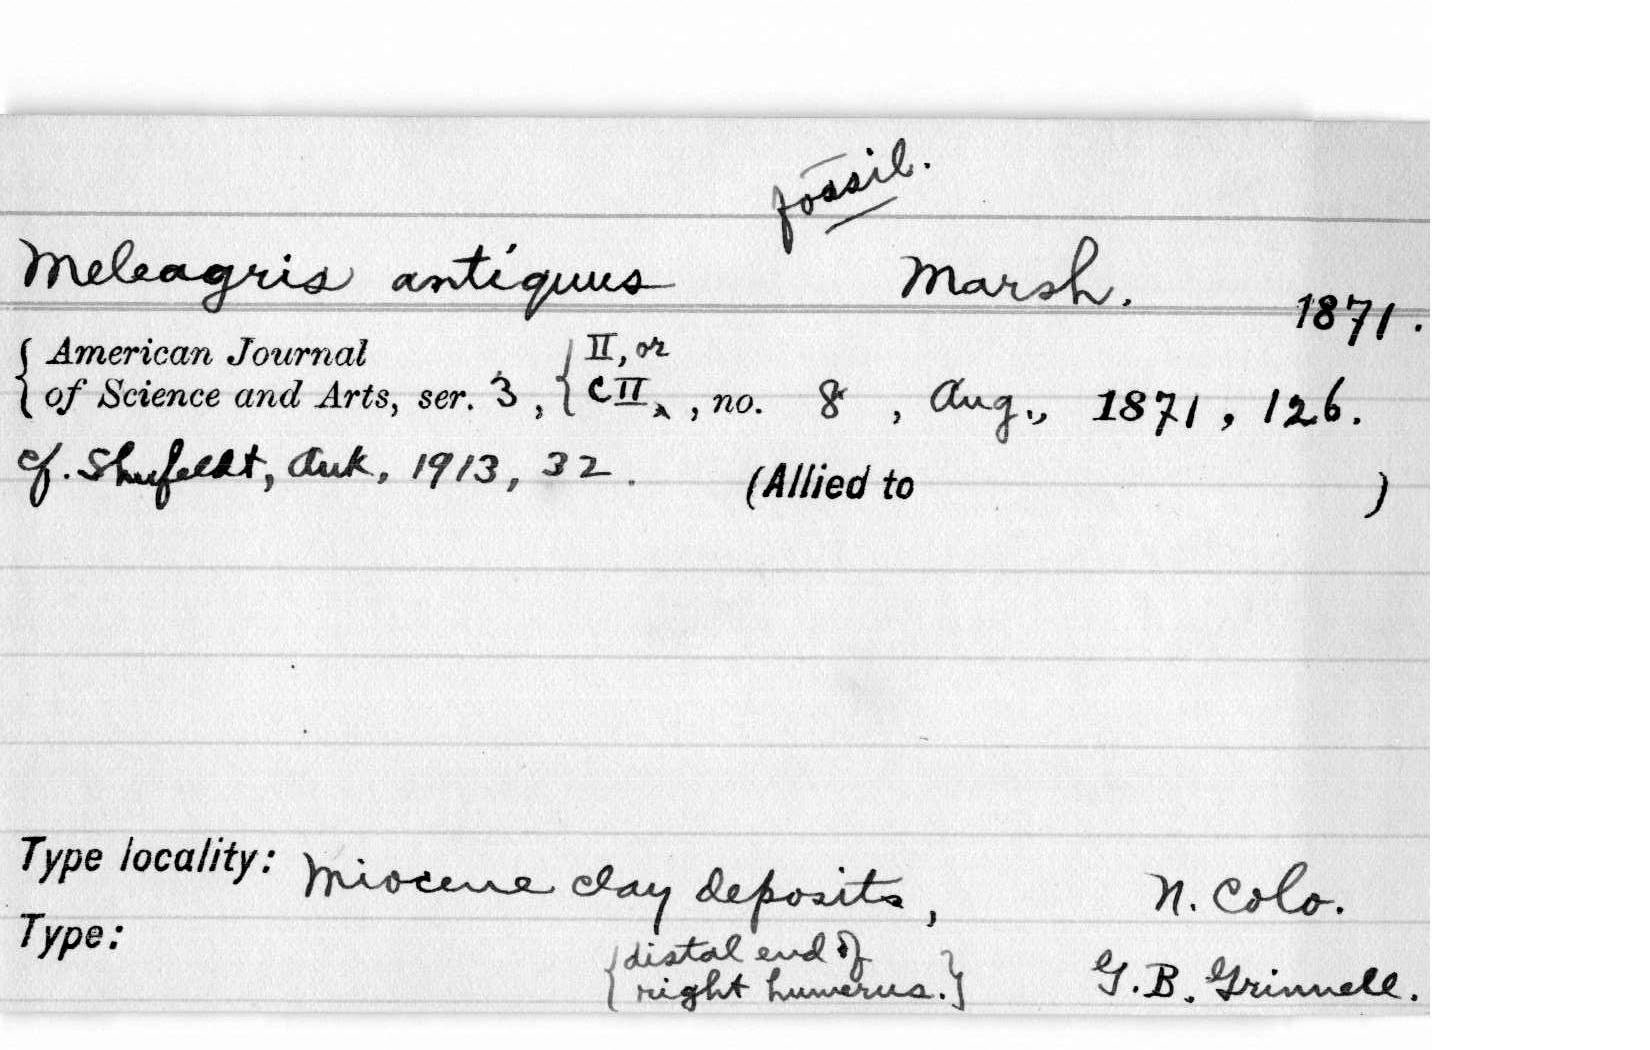 fossil.
Meleagris antiquus Marsh. 1871.
{ American Journal { II, or
of Science and Arts, ser. 3, CII, , no. 8, Aug., 1871, 126.
cf. Shufeldt, Auk, 1913, 32. (Allied to )
Type locality: Miocene clay deposits, N. Colo.
Type: { distal end of
right humerus. } G. B. Grinnell.